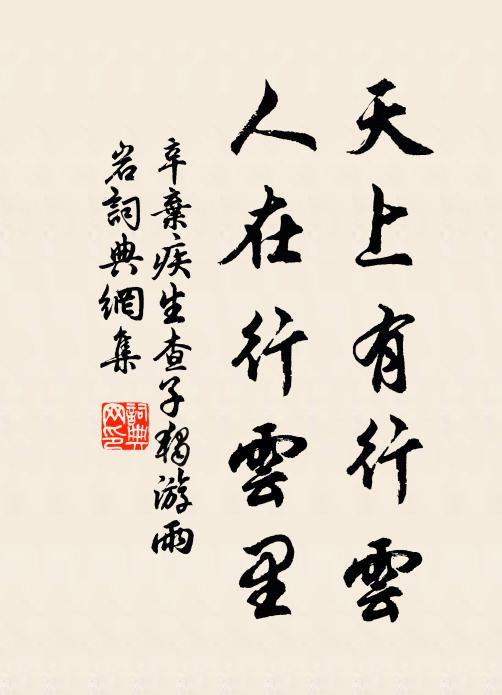 天上有行雲
人在行雲里
辛棄疾生查子獨游雨
岩詞典網集
詞典
网印